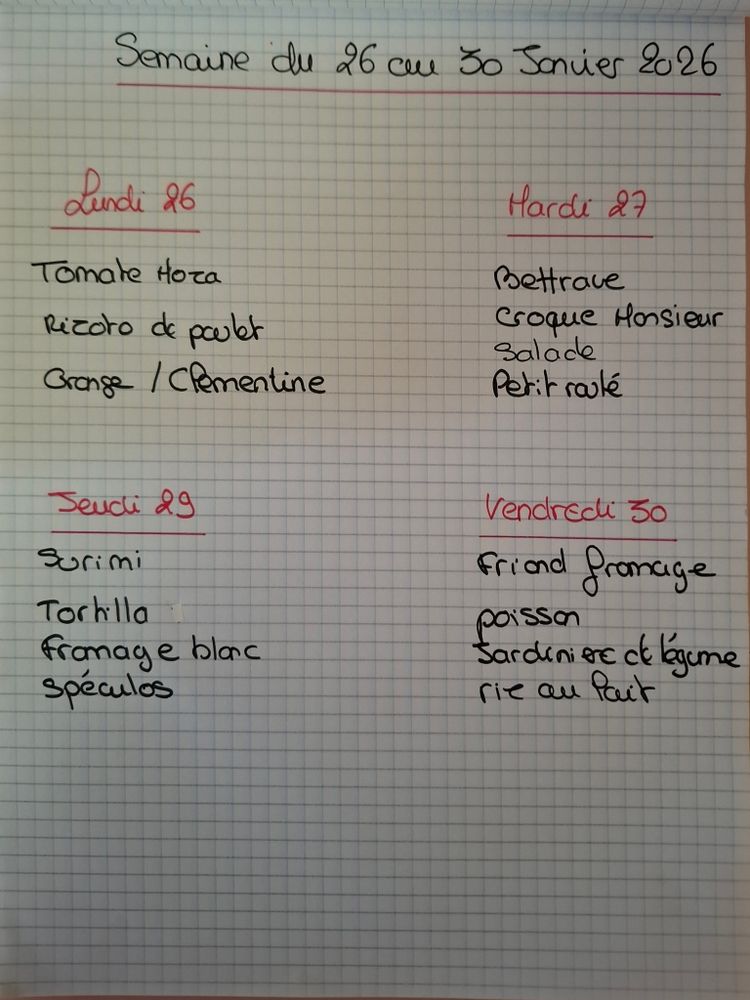 Semaine du 26 au 30 Janvier 2026
Lundi 26
Tomate Moza
Rizoto de poulet
Orange / Clémentine
Mardi 27
Bettrave
Croque Monsieur
Salade
Petit roulé
Jeudi 29
Surimi
Tortilla
Fromage blanc
Spéculos
Vendredi 30
Friand fromage
poisson
Jardiniere de légume
rie au lait